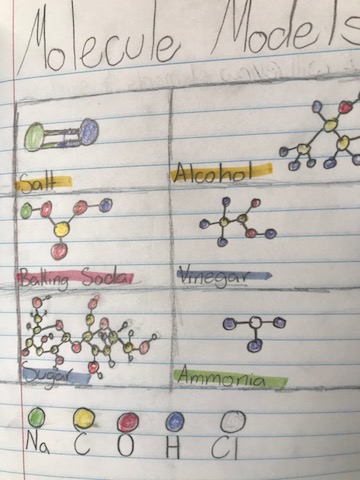 Molecule Models
Salt
Alcohol
Baking Soda
Vinegar
Sugar
Ammonia
Na C O H Cl